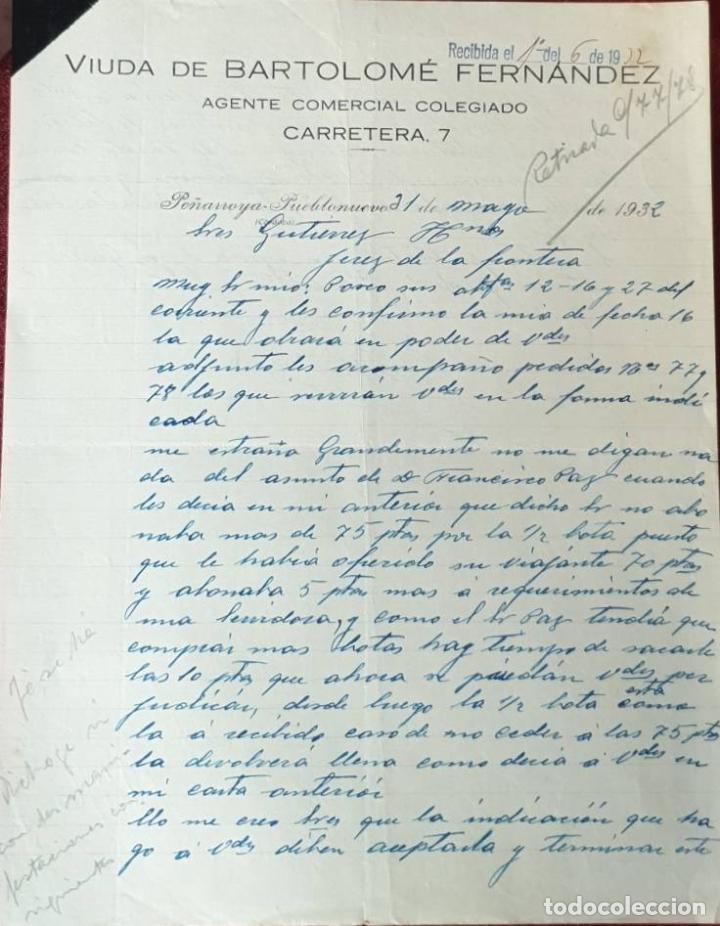 Recibida el 1º del 6 de 1932
VIUDA DE BARTOLOMÉ FERNÁNDEZ
AGENTE COMERCIAL COLEGIADO
CARRETERA, 7
Retirada 77/78
Peñarroya-Pueblonuevo 31 de mayo de 1932
(CÓRDOBA)
Sres Gutierrez Hnos
Jerez de la frontera
Muy Sr mio: Poseo sus 12-16 y 27 del
coriente y les confirmo la mia de fecha 16
la que obrará en poder de Vdes
adjunto les acompaño pedidos Nos 77 y
78 los que servirán Vdes en la forma indi
cada
me estraña Grandemente no me digan na
da del asunto de D Francisco Paz cuando
les decia en mi anterior que dicho Sr no abo
naba mas de 75 ptas por la 1/2 bota puesto
que le habia ofrecido su viajante 70 ptas
y abonaba 5 ptas mas a requerimientos de
una servidora, y como el Sr Paz tendia que
comprar mas botas hay tiempo de sacarle
las 10 ptas que ahora se puedan Vdes per
judicar, desde luego la 1/2 bota esta como
la á recibido caso de no ceder á las 75 ptas
la devolverá llena como decia á Vdes en
mi carta anterior
Yo me creo Sres que la indicación que ha
go á Vdes deben aceptarla y terminar este
con
siguientes
todocoleccion